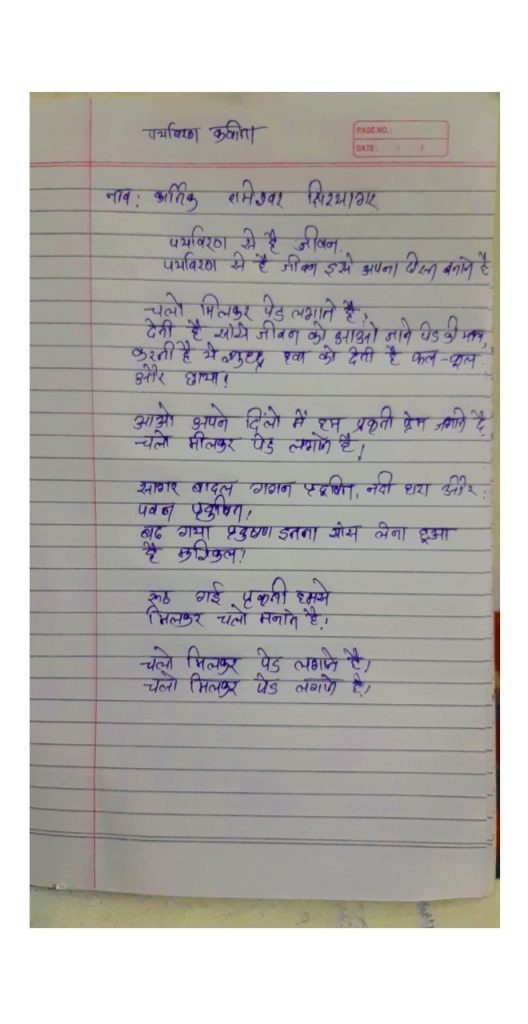 पर्यावरण कवीता
PAGE NO.:
DATE: / /
नाव: कार्तिक रामेश्वर क्षिरसागर
पर्यावरण से है जीवन
पर्यावरण से है जीवन इसे अपना दोस्त बनाते है
चलो मिलकर पेड लगाते है!
देती है सांसे जीवन को आओ जाने पेड की
करती है ये शुद्ध हवा को देती है फल-फूल
और छाया!
आओ अपने दिलो में हम प्रकृती प्रेम जगाते है
चलो मीलकर पेड लगाते है!
सागर बादल गगन प्रदूषित, नदी धरा और
पवन प्रदुषित!
बढ गया प्रदुषण इतना सांस लेना हुआ
है मुश्किल!
रूठ गई प्रकृती हमसे
मिलकर चलो मनाते है!
चलो मिलकर पेड लगाते है!
चलो मिलकर पेड लगाते है!